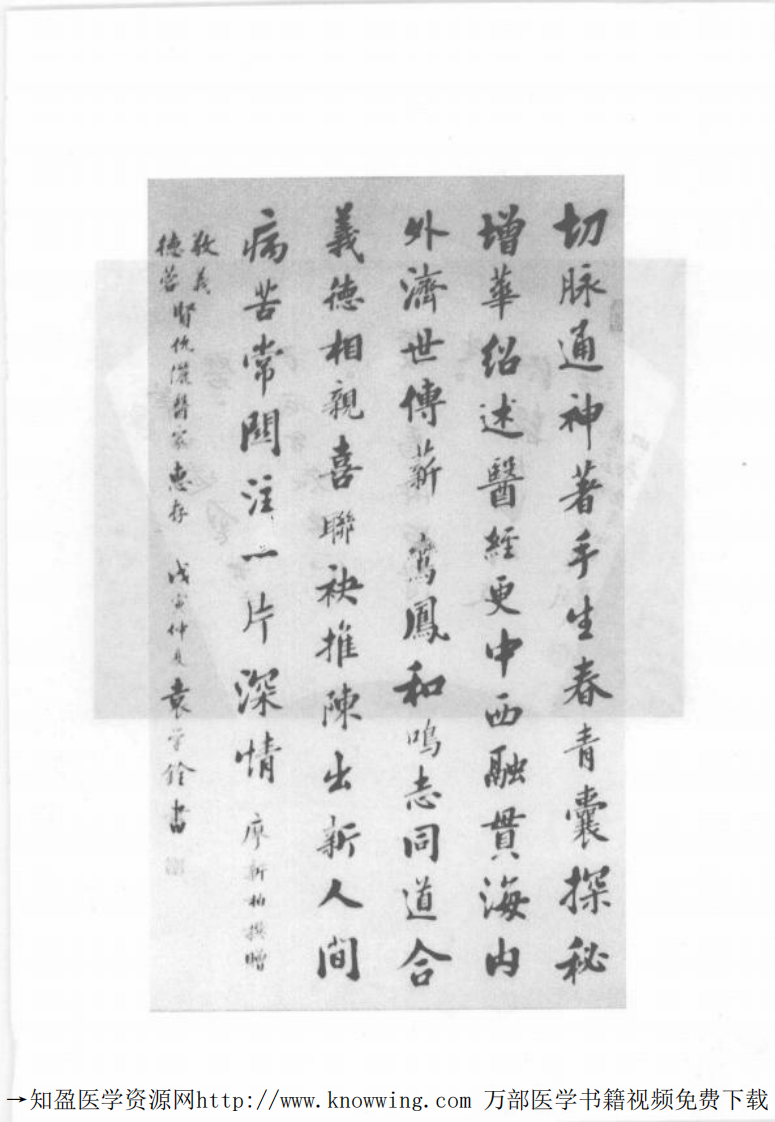 切脉通神著手生春青囊探秘
增華紹述醫經更中西融貫海内
外濟世傳薪鸞鳳和鳴志同道合
義德相親喜聯袂推陳出新人間
病苦常關注一片深情 廖新柏撰贈
敬義
德蓉
賢伉儷醫家惠存 戊寅仲夏 袁学铨書
→知盈医学资源网http://www.knowwing.com 万部医学书籍视频免费下载